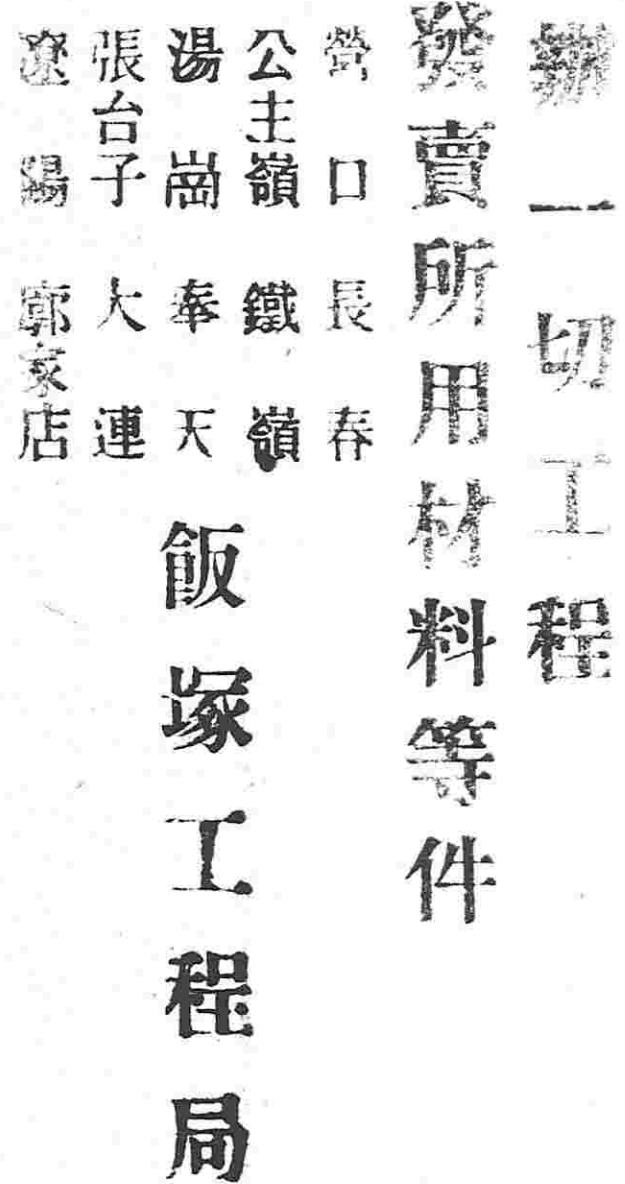 辦一切工程
發賣所用材料等件
營口 長春
公主嶺 鐵嶺
湯崗 奉天
張台子 大連
遼陽 郭家店
飯塚工程局